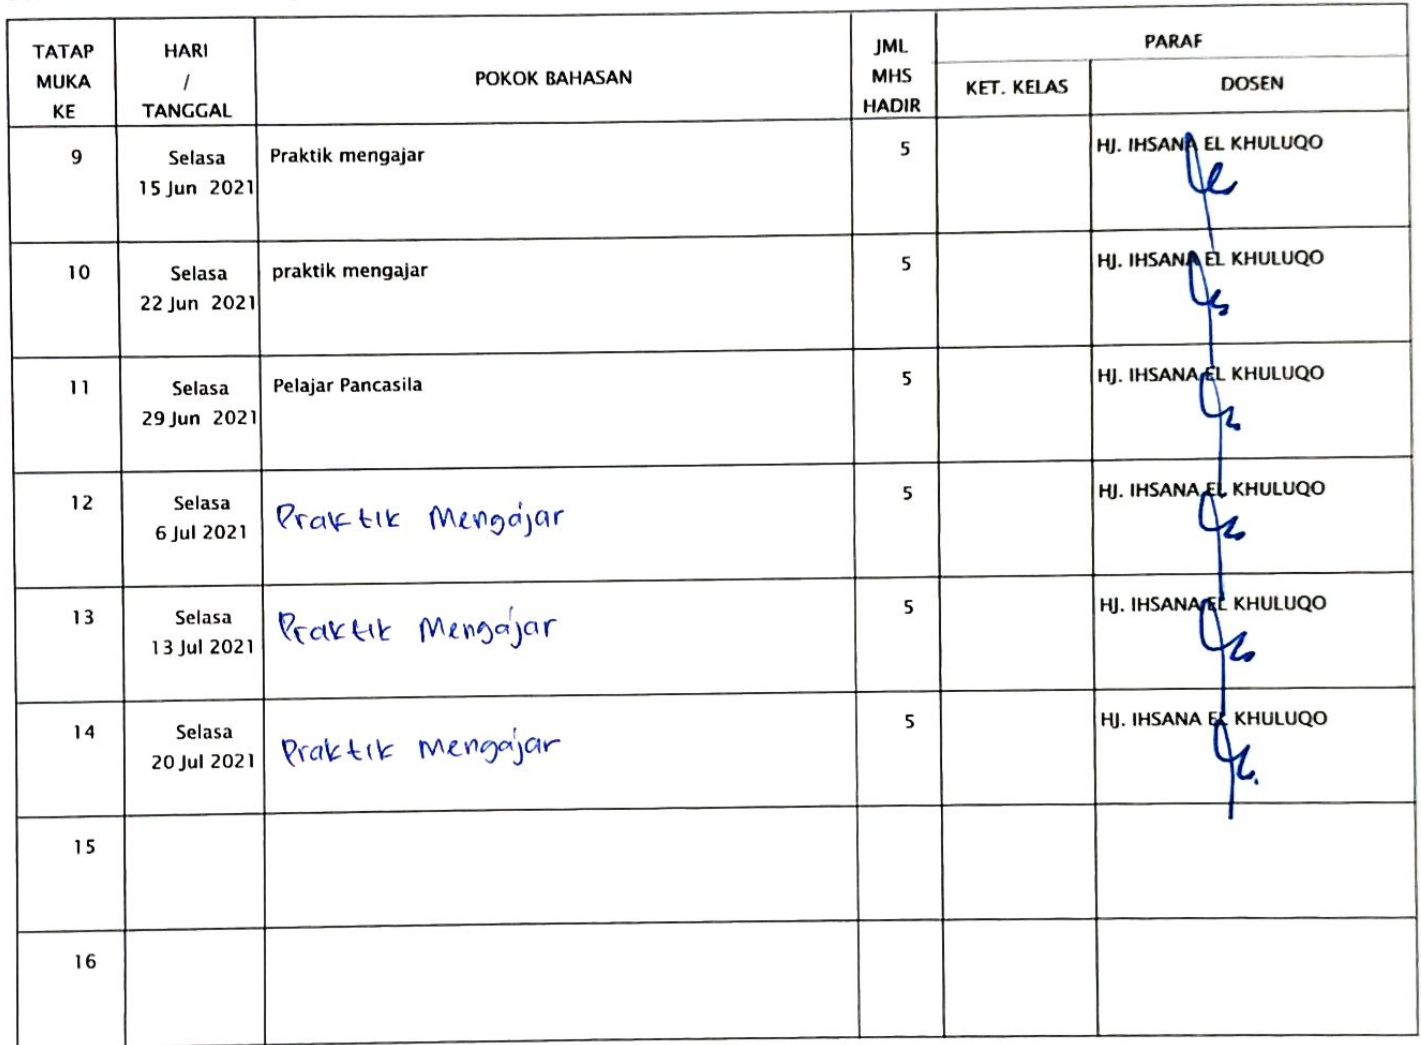 TATAP
MUKA
KE
HARI
/
TANGGAL
POKOK BAHASAN
JML
MHS
HADIR
PARAF
KET. KELAS
DOSEN
9
Selasa
15 Jun 2021
Praktik mengajar
5
HJ. IHSANA EL KHULUQO
10
Selasa
22 Jun 2021
praktik mengajar
5
HJ. IHSANA EL KHULUQO
11
Selasa
29 Jun 2021
Pelajar Pancasila
5
HJ. IHSANA EL KHULUQO
12
Selasa
6 Jul 2021
Praktik Mengajar
5
HJ. IHSANA EL KHULUQO
13
Selasa
13 Jul 2021
Praktik Mengajar
5
HJ. IHSANA EL KHULUQO
14
Selasa
20 Jul 2021
Praktik Mengajar
5
HJ. IHSANA EL KHULUQO
15
16